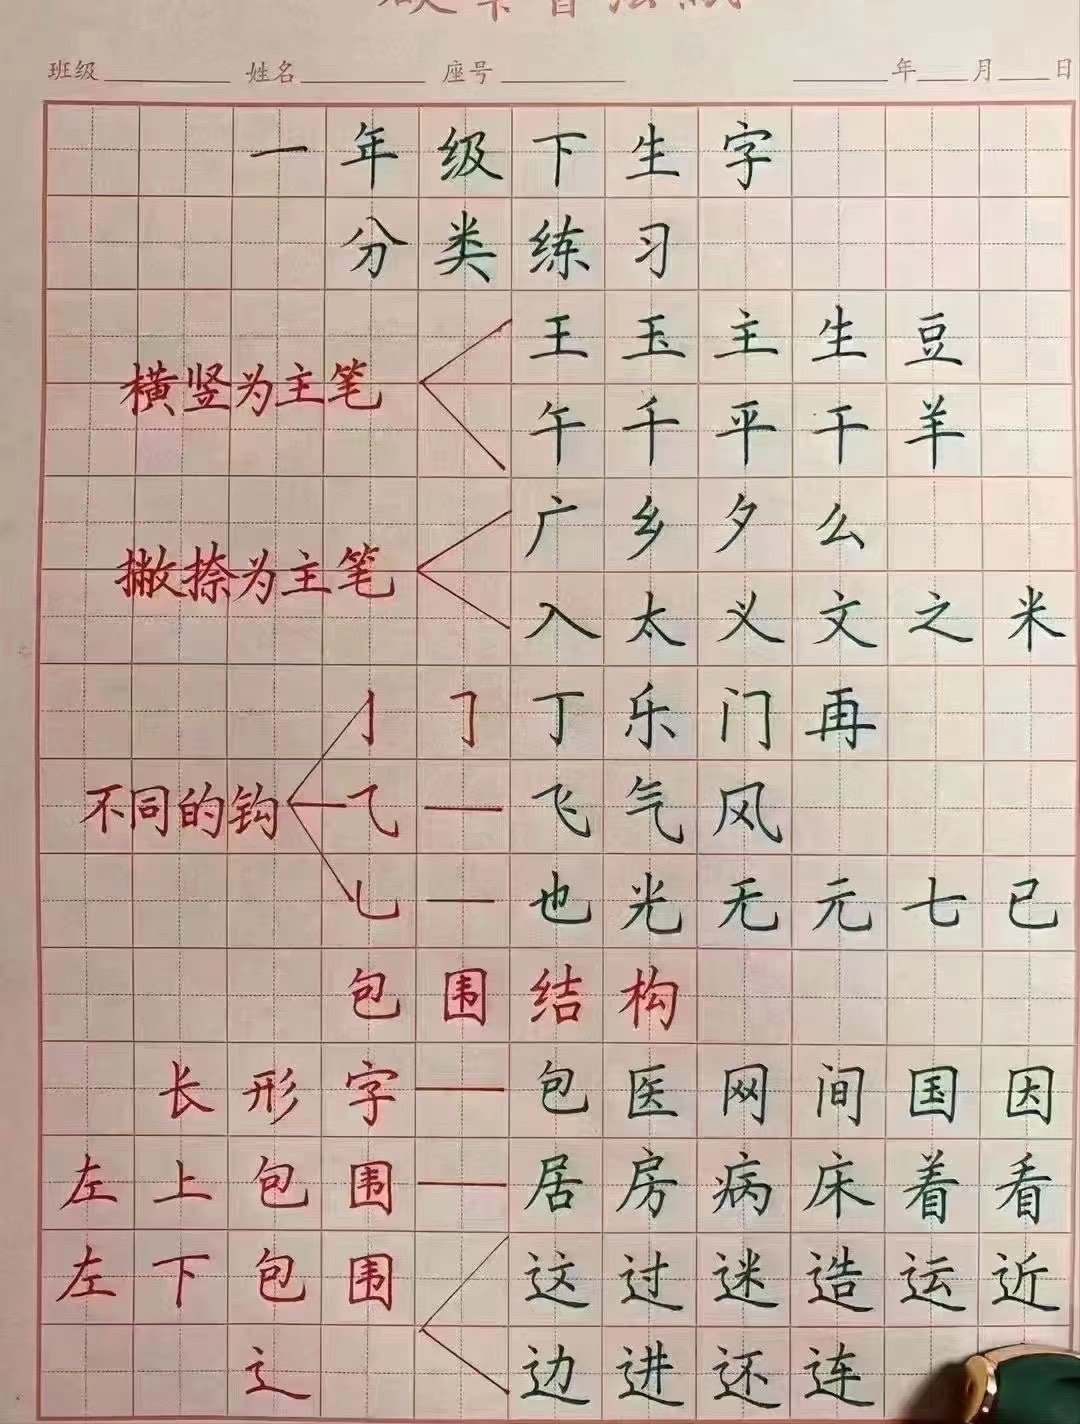 班级 姓名 座号 年 月 日
一年级下生字
分类练习
横竖为主笔
王玉主生豆
午千平干羊
撇捺为主笔
广乡夕么
入太义文之米
不同的钩
亅 𠃌 丁乐门再
⺄ — 飞气风
乚 — 也光无元七已
包围结构
长形字 — 包医网间国因
左上包围 — 居房病床着看
左下包围 这过迷造运近
辶 边进还连